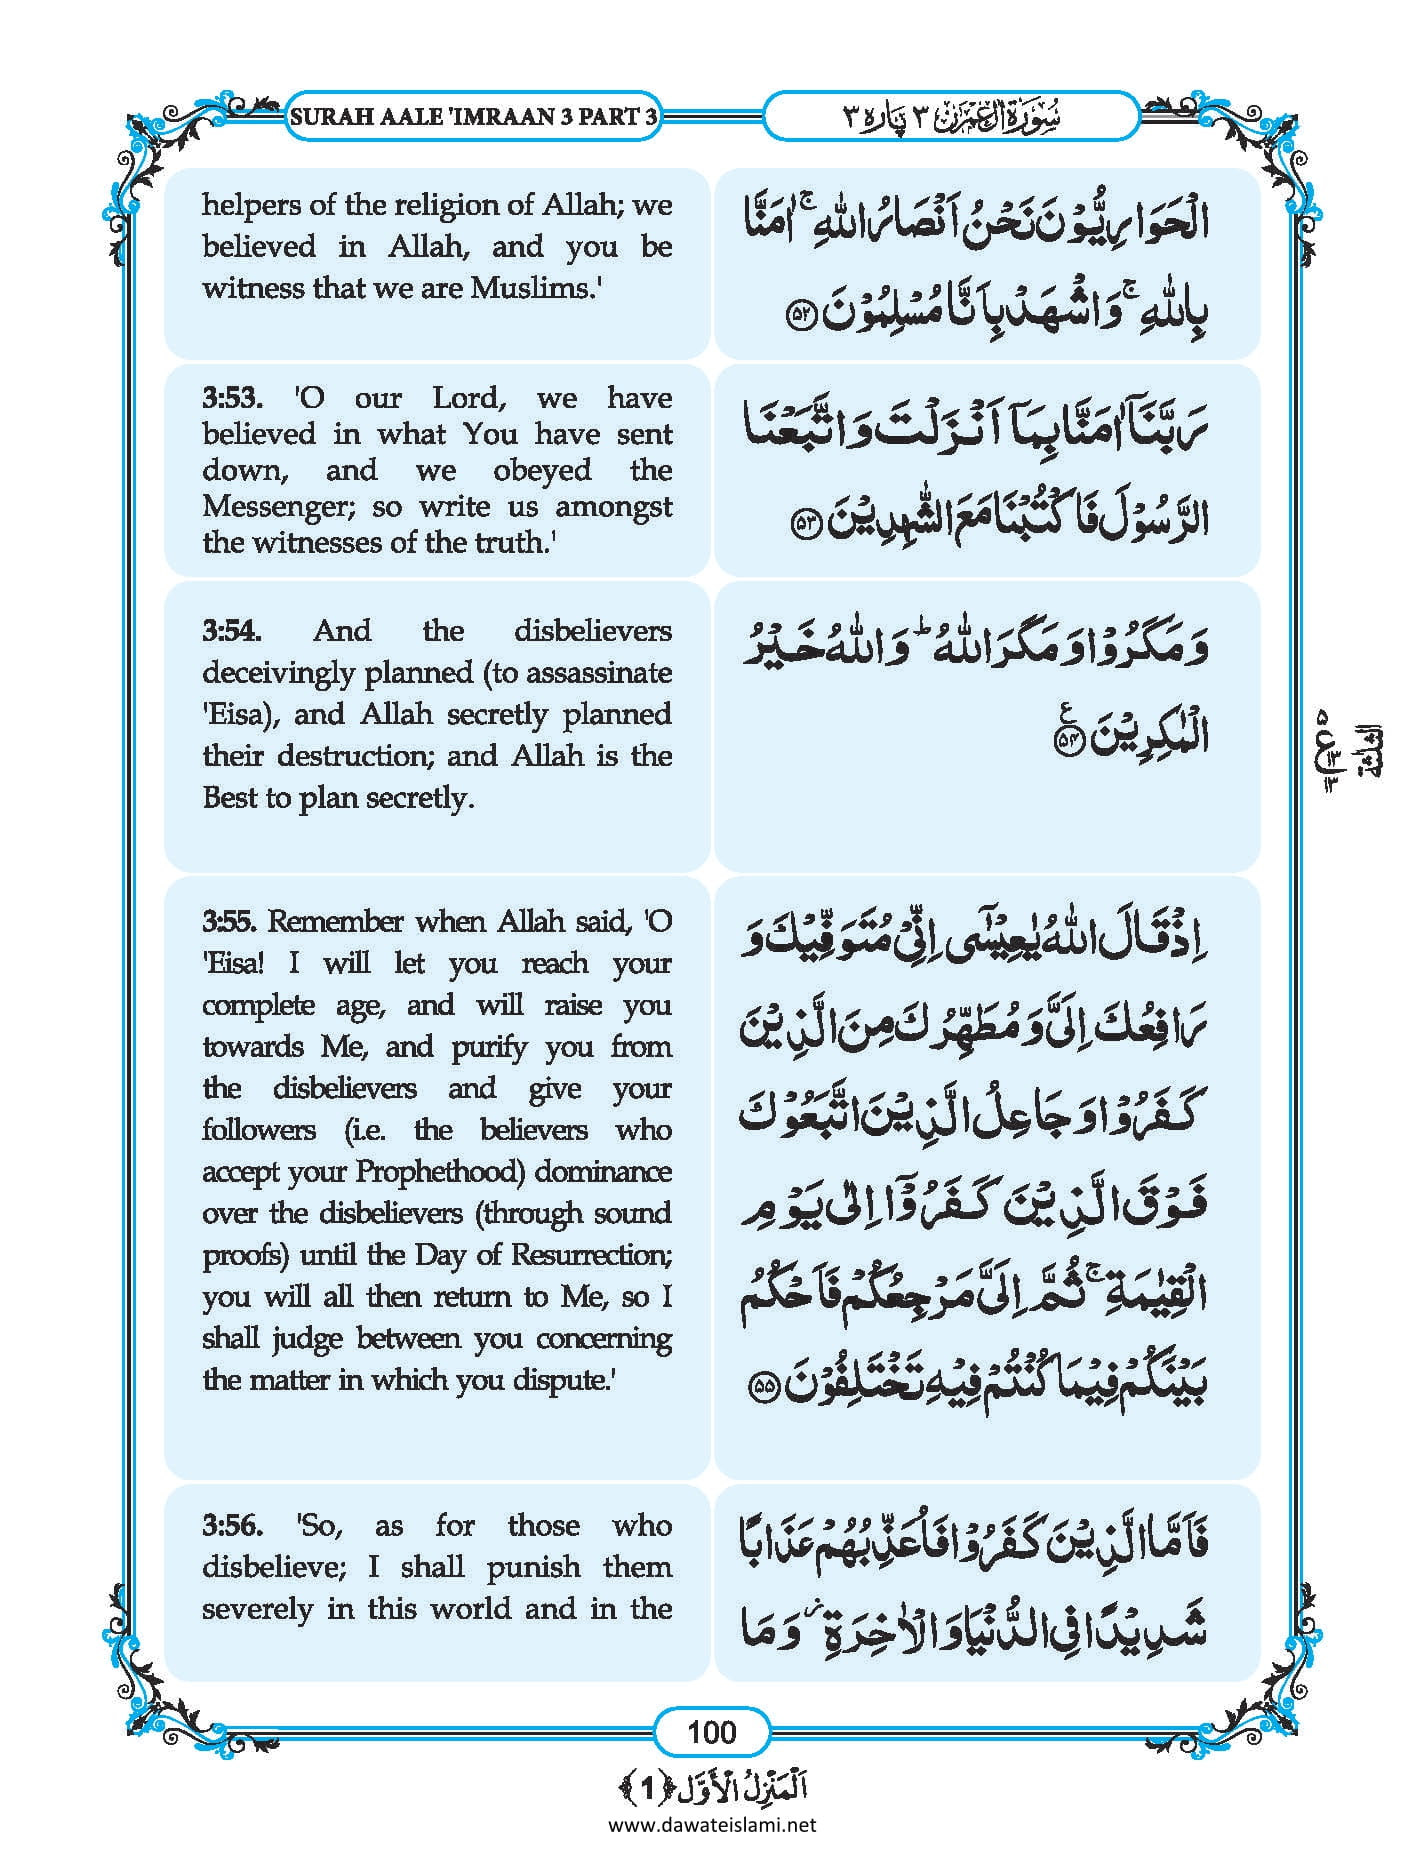 SURAH AALE 'IMRAAN 3 PART 3
سُوْرَةُ اٰلِ عِمْرٰن ٣ پَارَه ٣
helpers of the religion of Allah; we
believed in Allah, and you be
witness that we are Muslims.'
الْحَوَارِيُّوْنَ نَحْنُ اَنْصَارُ اللّٰهِ ۚ اٰمَنَّا
بِاللّٰهِ ۚ وَ اشْهَدْ بِاَنَّا مُسْلِمُوْنَ ﴿۵۲﴾
3:53. 'O our Lord, we have
believed in what You have sent
down, and we obeyed the
Messenger; so write us amongst
the witnesses of the truth.'
رَبَّنَاۤ اٰمَنَّا بِمَاۤ اَنْزَلْتَ وَ اتَّبَعْنَا
الرَّسُوْلَ فَاكْتُبْنَا مَعَ الشّٰهِدِيْنَ ﴿۵۳﴾
3:54. And the disbelievers
deceivingly planned (to assassinate
'Eisa), and Allah secretly planned
their destruction; and Allah is the
Best to plan secretly.
وَ مَكَرُوْا وَ مَكَرَ اللّٰهُ ؕ وَ اللّٰهُ خَيْرُ
الْمٰكِرِيْنَ ﴿۵۴﴾ ع
۵
ع
١٣
١٣
الثلثة
3:55. Remember when Allah said, 'O
'Eisa! I will let you reach your
complete age, and will raise you
towards Me, and purify you from
the disbelievers and give your
followers (i.e. the believers who
accept your Prophethood) dominance
over the disbelievers (through sound
proofs) until the Day of Resurrection;
you will all then return to Me, so I
shall judge between you concerning
the matter in which you dispute.'
اِذْ قَالَ اللّٰهُ يٰعِيْسٰۤى اِنِّيْ مُتَوَفِّيْكَ وَ
رَافِعُكَ اِلَيَّ وَ مُطَهِّرُكَ مِنَ الَّذِيْنَ
كَفَرُوْا وَ جَاعِلُ الَّذِيْنَ اتَّبَعُوْكَ
فَوْقَ الَّذِيْنَ كَفَرُوْۤا اِلٰى يَوْمِ
الْقِيٰمَةِ ۚ ثُمَّ اِلَيَّ مَرْجِعُكُمْ فَاَحْكُمُ
بَيْنَكُمْ فِيْمَا كُنْتُمْ فِيْهِ تَخْتَلِفُوْنَ ﴿۵۵﴾
3:56. 'So, as for those who
disbelieve; I shall punish them
severely in this world and in the
فَاَمَّا الَّذِيْنَ كَفَرُوْا فَاُعَذِّبُهُمْ عَذَابًا
شَدِيْدًا فِي الدُّنْيَا وَ الْاٰخِرَةِ ۫ وَ مَا
100
اَلْمَنْزِلُ الْاَوَّل ﴿1﴾
www.dawateislami.net